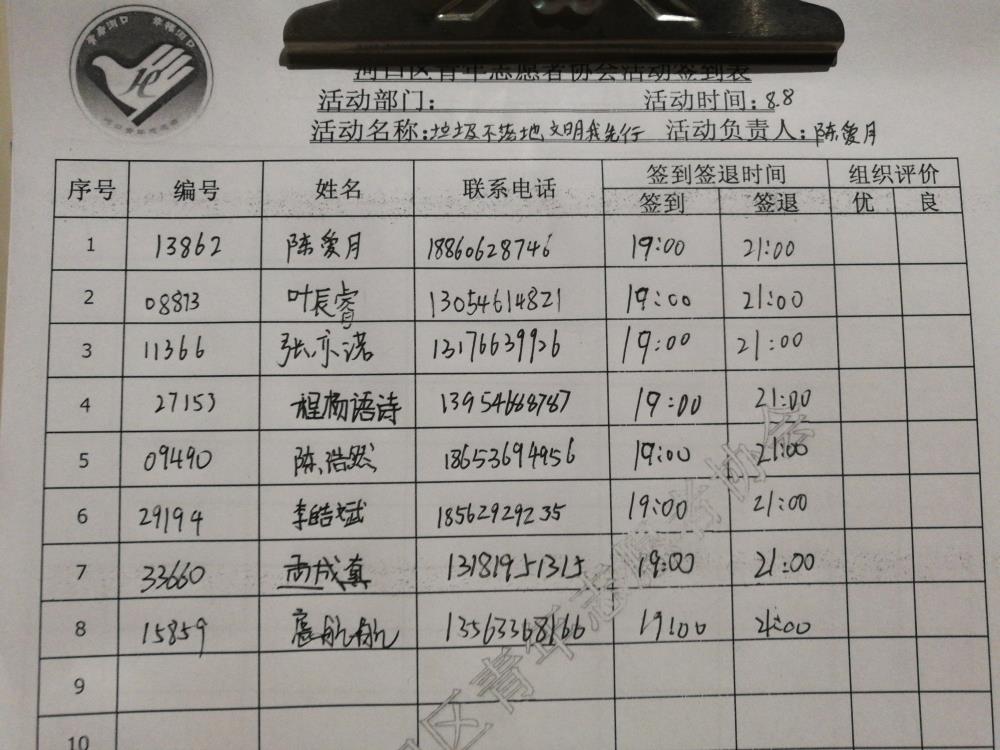 青春河口 幸福河口
河口青年志愿者
河口区青年志愿者协会活动签到表
活动部门: 活动时间:8.8
活动名称:垃圾不落地,文明我先行 活动负责人:陈爱月
序号 编号 姓名 联系电话 签到签退时间 组织评价
签到 签退 优 良
1 13862 陈爱月 18860628746 19:00 21:00
2 08873 叶长睿 13054614821 19:00 21:00
3 11366 张亦诺 13176639926 19:00 21:00
4 27153 程杨语诗 13954668787 19:00 21:00
5 09490 陈浩然 18653694956 19:00 21:00
6 29194 李皓斌 18562929235 19:00 21:00
7 33660 成真 13181951315 19:00 21:00
8 15859 航航 13563368166 19:00 21:00
9
10
区青年志愿者协会